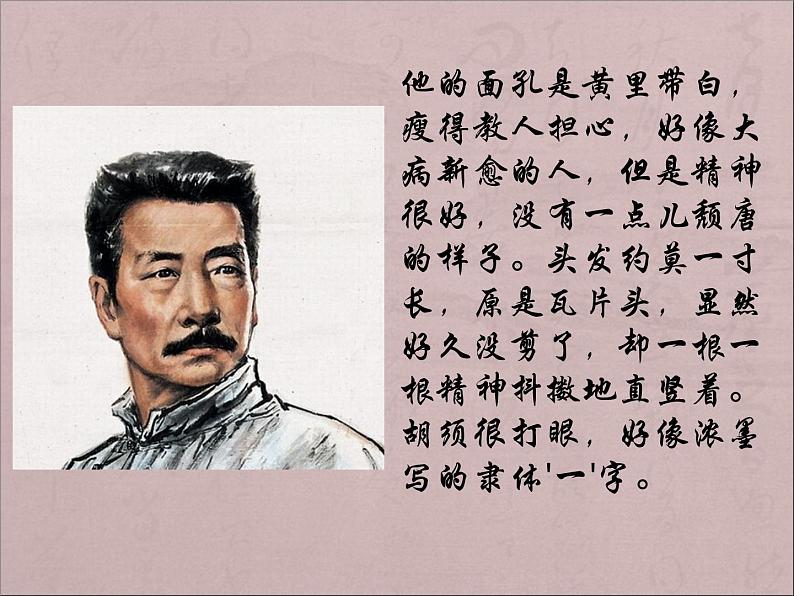 他的面孔是黄里带白，
瘦得教人担心，好像大
病新愈的人，但是精神
很好，没有一点儿颓唐
的样子。头发约莫一寸
长，原是瓦片头，显然
好久没剪了，却一根一
根精神抖擞地直竖着。
胡须很打眼，好像浓墨
写的隶体'一'字。